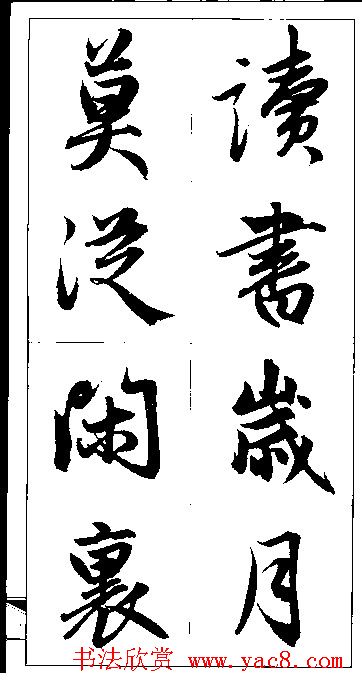 讀書歲月
莫從閑裏
书法欣赏 www.yac8.com